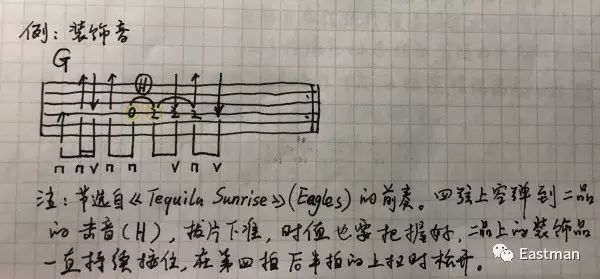 例：装饰音
G
H
0 2 2 2
п п v п п v п v
注：节选自《Tequila Sunrise》(Eagles)的前奏。四弦上空弹到二品
的击音(H)，拨片下准，时值也要把握好，二品上的装饰品
一直持续按住，在第四拍后半拍的上扫时松开。
Eastman